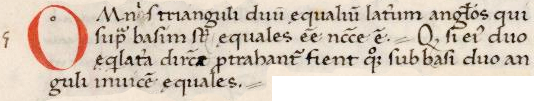 OMnis trianguli duũ equaliũ laterum angl̃os qui
sup̃ basim st̃ equales eẽ ncc̃e ẽ. Q, si ei9 duo
eqlat̃a dirc̃e ptrahant̃ fient qq sub basi duo an
guli inuicẽ equales.